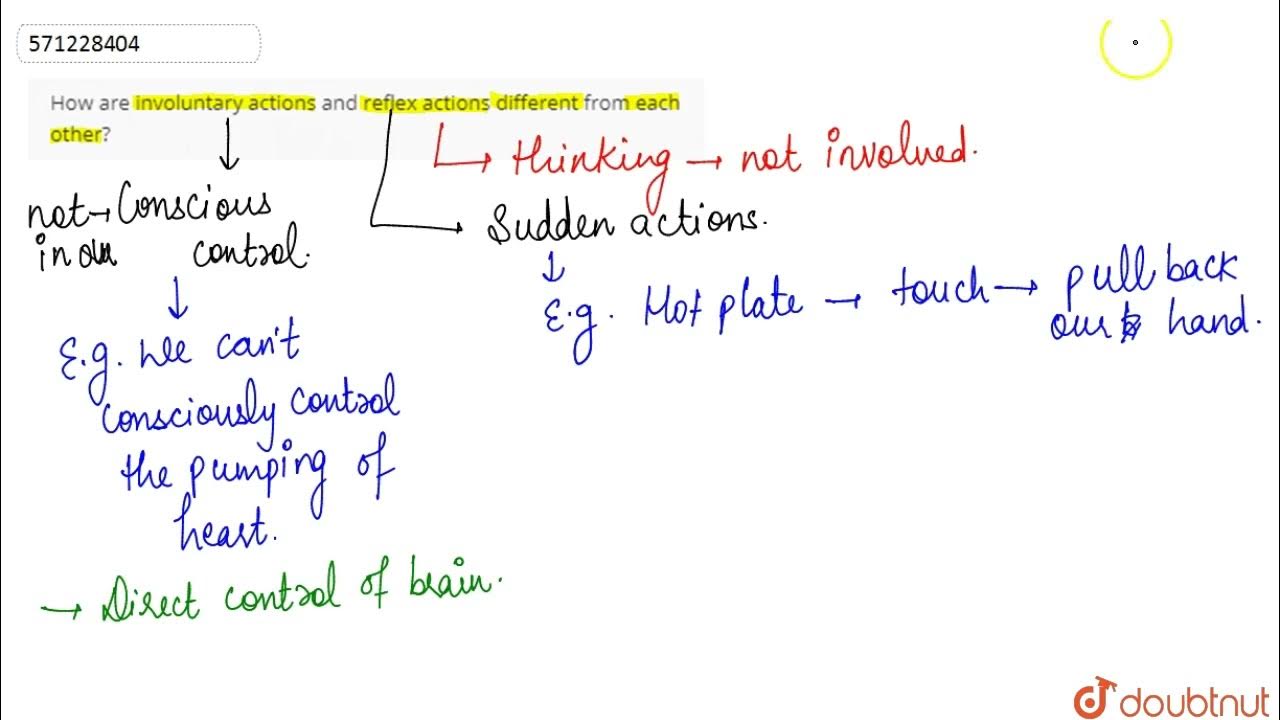 571228404
How are involuntary actions and reflex actions different from each
other?
→ thinking → not involved.
not → Conscious
in our control.
Sudden actions.
E.g. Hot plate → touch → pull back
our hand.
E.g. We can't
consciously control
the pumping of
heart.
→ Direct control of brain.
doubtnut